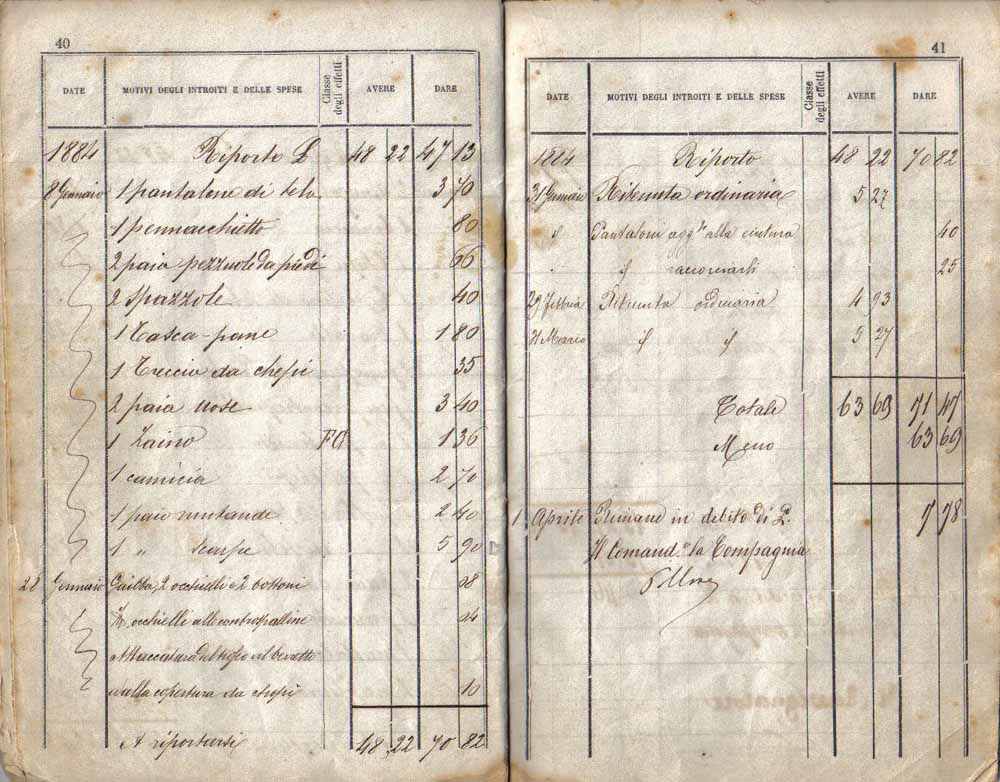 40
DATE MOTIVI DEGLI INTROITI E DELLE SPESE Classe degli effetti AVERE DARE
1884 Riporto L 48 22 47 13
8 Gennaio 1 pantalone di tela 3 70
1 pennacchietto 80
2 paia pezzuole da piedi 66
2 Spazzole 40
1 Tasca-pane 1 80
1 Treccia da chepì 35
2 paia uose 3 40
1 Zaino FO 1 36
1 camicia 2 70
1 paio mutande 2 40
1 " scarpe 5 90
28 Gennaio 2 occhielli e 2 bottoni 08
occhielli alle controspalline 04
berretto
alla copertura da chepì 10
A riportarsi 48 22 70 82
41
DATE MOTIVI DEGLI INTROITI E DELLE SPESE Classe degli effetti AVERE DARE
1884 Riporto 48 22 70 82
31 Gennaio Ritenuta ordinaria 5 27
Pantaloni agg.ta alla cintura 40
25
29 Febbraio Ritenuta ordinaria 4 93
31 Marzo 5 27
Totale 63 69 71 47
Meno 63 69
1 Aprile Rimane in debito di L. 7 78
Il Comand.te la Compagnia